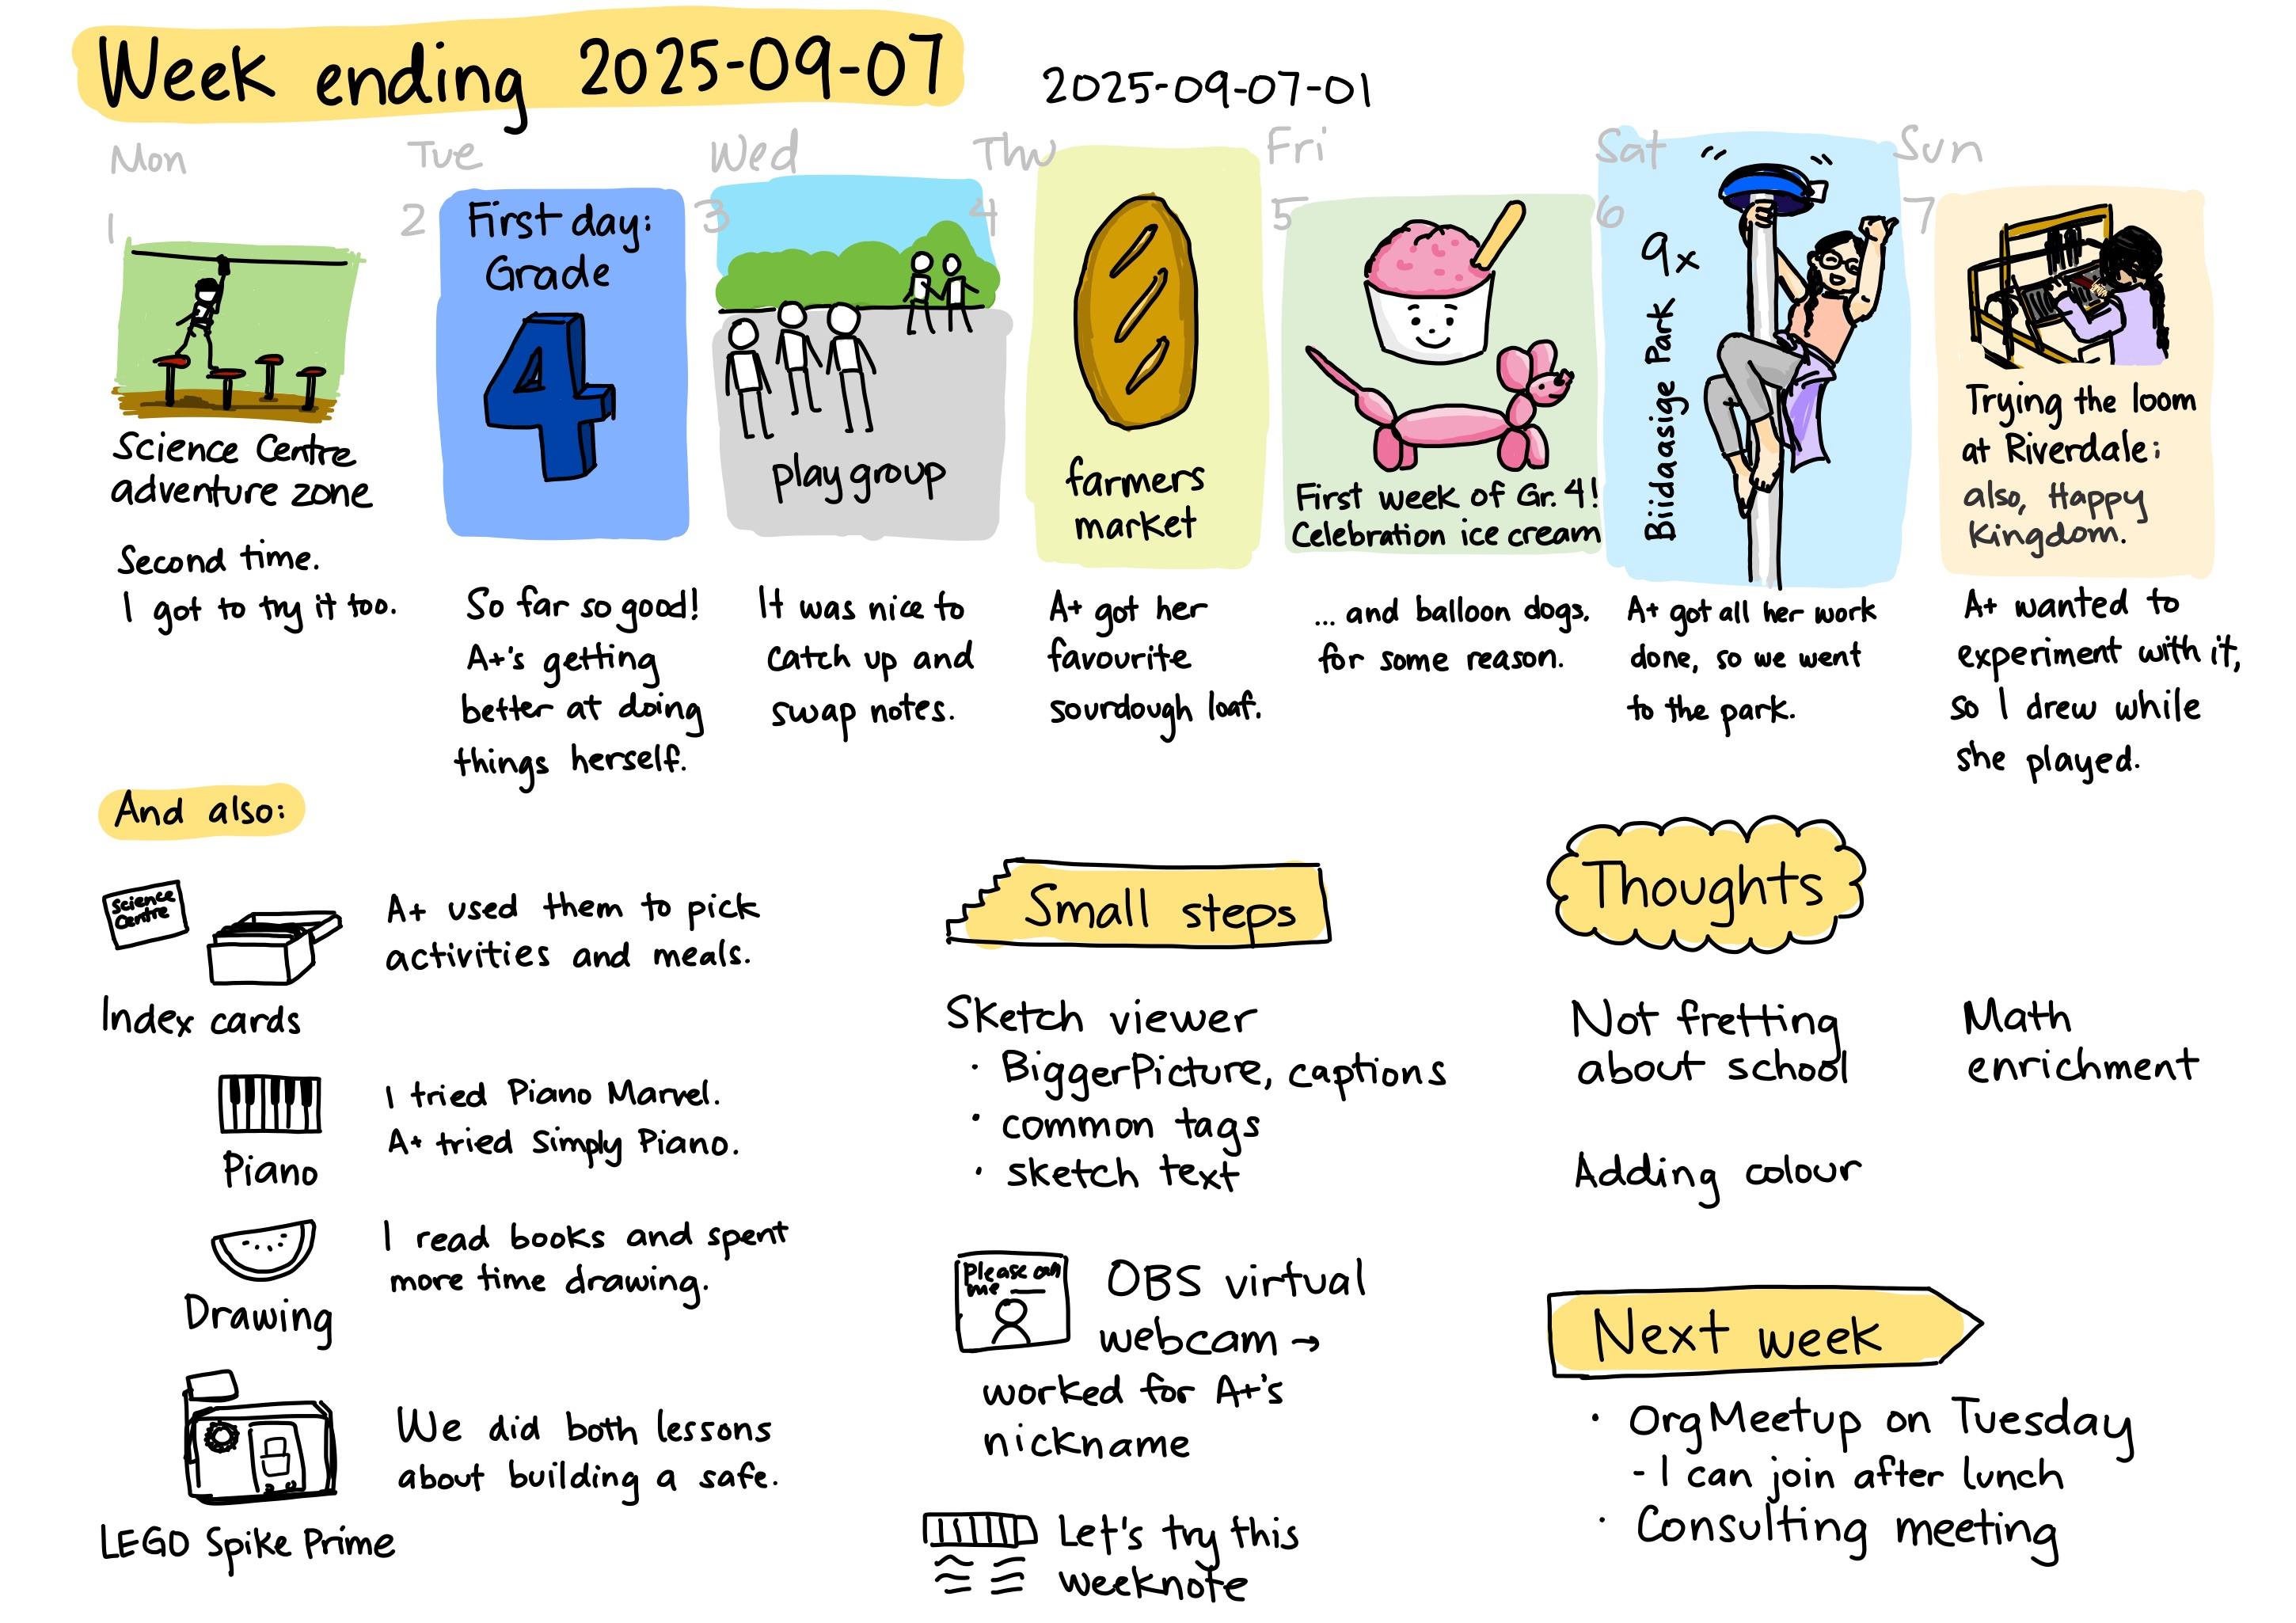 Week ending 2025-09-07
2025-09-07-01
Mon
1
Science Centre
adventure zone
Second time.
I got to try it too.
Tue
2
First day:
Grade
4
So far so good!
A+'s getting
better at doing
things herself.
Wed
3
playgroup
It was nice to
catch up and
swap notes.
Thu
4
farmers
market
A+ got her
favourite
sourdough loaf.
Fri
5
First week of Gr. 4!
Celebration ice cream
... and balloon dogs,
for some reason.
Sat
6
Biidaasige Park 9x
A+ got all her work
done, so we went
to the park.
Sun
7
Trying the loom
at Riverdale;
also, Happy
Kingdom.
A+ wanted to
experiment with it,
so I drew while
she played.
And also:
Science
Centre
Index cards
A+ used them to pick
activities and meals.
Piano
I tried Piano Marvel.
A+ tried Simply Piano.
Drawing
I read books and spent
more time drawing.
LEGO Spike Prime
We did both lessons
about building a safe.
Small steps
Sketch viewer
· BiggerPicture, captions
· common tags
· sketch text
Please call
me
OBS virtual
webcam →
worked for A+'s
nickname
Let's try this
weeknote
Thoughts
Not fretting
about school
Math
enrichment
Adding colour
Next week
· OrgMeetup on Tuesday
- I can join after lunch
· Consulting meeting